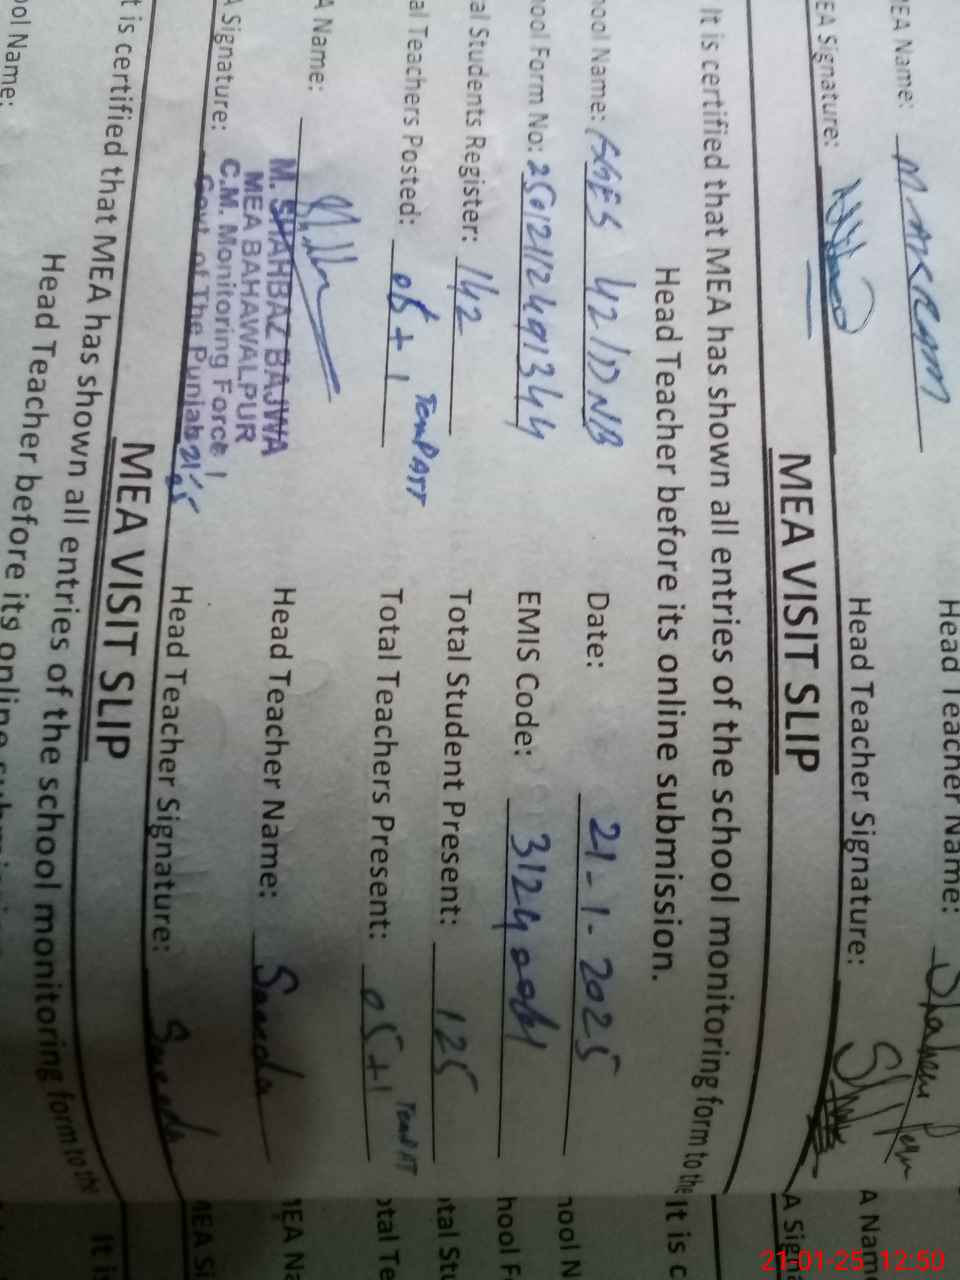 MEA Name: M AKRAM Head Teacher Name: Shaheen
EA Signature: Head Teacher Signature:
MEA VISIT SLIP
It is certified that MEA has shown all entries of the school monitoring form to the
Head Teacher before its online submission.
hool Name: GGES 42/DNB Date: 21-1-2025
hool Form No: 25012112491344 EMIS Code:
al Students Register: 142 Total Student Present: 125
al Teachers Posted: 05+1 Total Teachers Present: 05+1
A Name: Head Teacher Name:
M. SHAHBAZ BAJWA
MEA BAHAWALPUR
C.M. Monitoring Force
Govt. of The Punjab
A Signature: Head Teacher Signature:
MEA VISIT SLIP
t is certified that MEA has shown all entries of the school monitoring form to the
Head Teacher before its online
ool Name:
A Name
A Sign
It is c
hool N
hool F
tal Stu
otal Te
MEA Na
MEA Si
It is
21-01-25 12:50